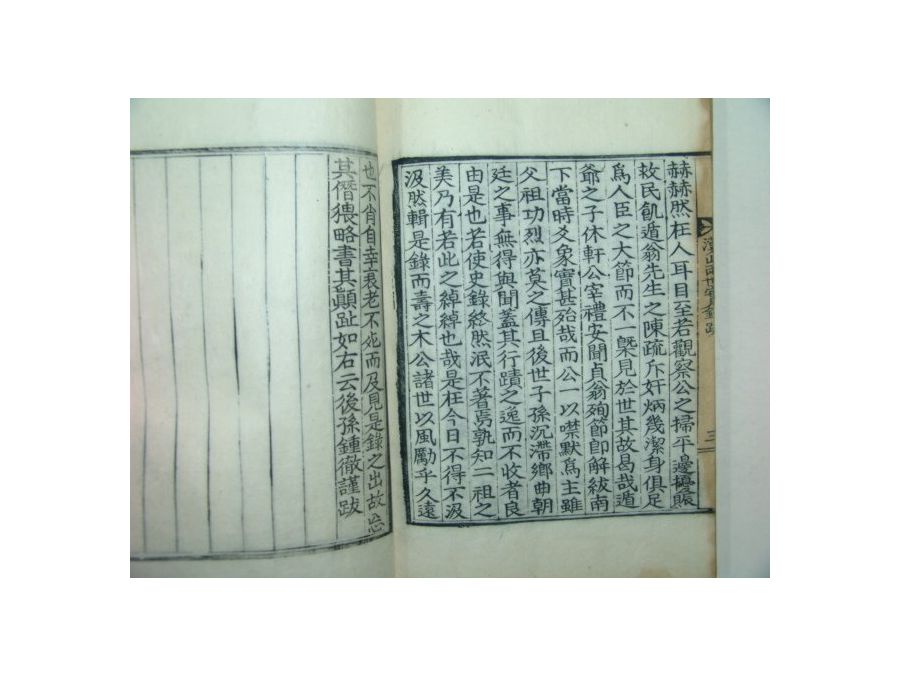 赫赫然在人耳目至若觀察公之掃平邊擾賑
救民飢遁翁先生之陳疏斥奸炳幾潔身俱足
爲人臣之大節而不一槩見於世其故曷哉遁
爺之子休軒公宰禮安聞貞翁殉節卽解紱南
下當時爻象實甚殆哉而公一以噤默爲主雖
父祖功烈亦莫之傳且後世子孫沉滯鄕曲朝
廷之事無得與聞蓋其行蹟之逸而不收者良
由是也若使史錄終然泯不著焉孰知二祖之
美乃有若此之綽綽也哉是在今日不得不汲
汲然輯是錄而壽之木公諸世以風勵乎久遠
也不肖自幸衰老不死而及見是錄之出故忘
其僭猥略書其顚趾如右云後孫鍾徹謹跋
世實錄跋
三